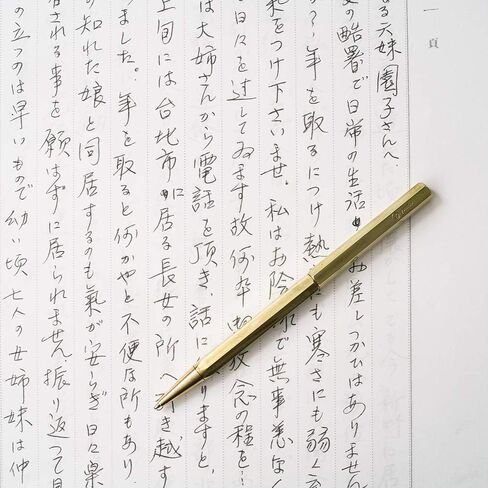 一頁
なる六妹園子さんへ、
の酷署で日常の生活にお差しつかひはありません
年を取るにつけ熱さにも寒さにも弱く
をつけ下さいませ。私はお陰で無事息な
日々を過してゐます故何卒御放念の程を
は大姉さんから電話を頂き、話によりますと、
上旬には台北市に居る長女の所へ引き越す
ました。年を取ると何かやと不便な所もあり
の知れた娘と同居するのも氣が安らぎ日々楽
される事を願はずに居られません。振り返つて見
の立つのは早いもので幼い頃七人の女姉妹は仲